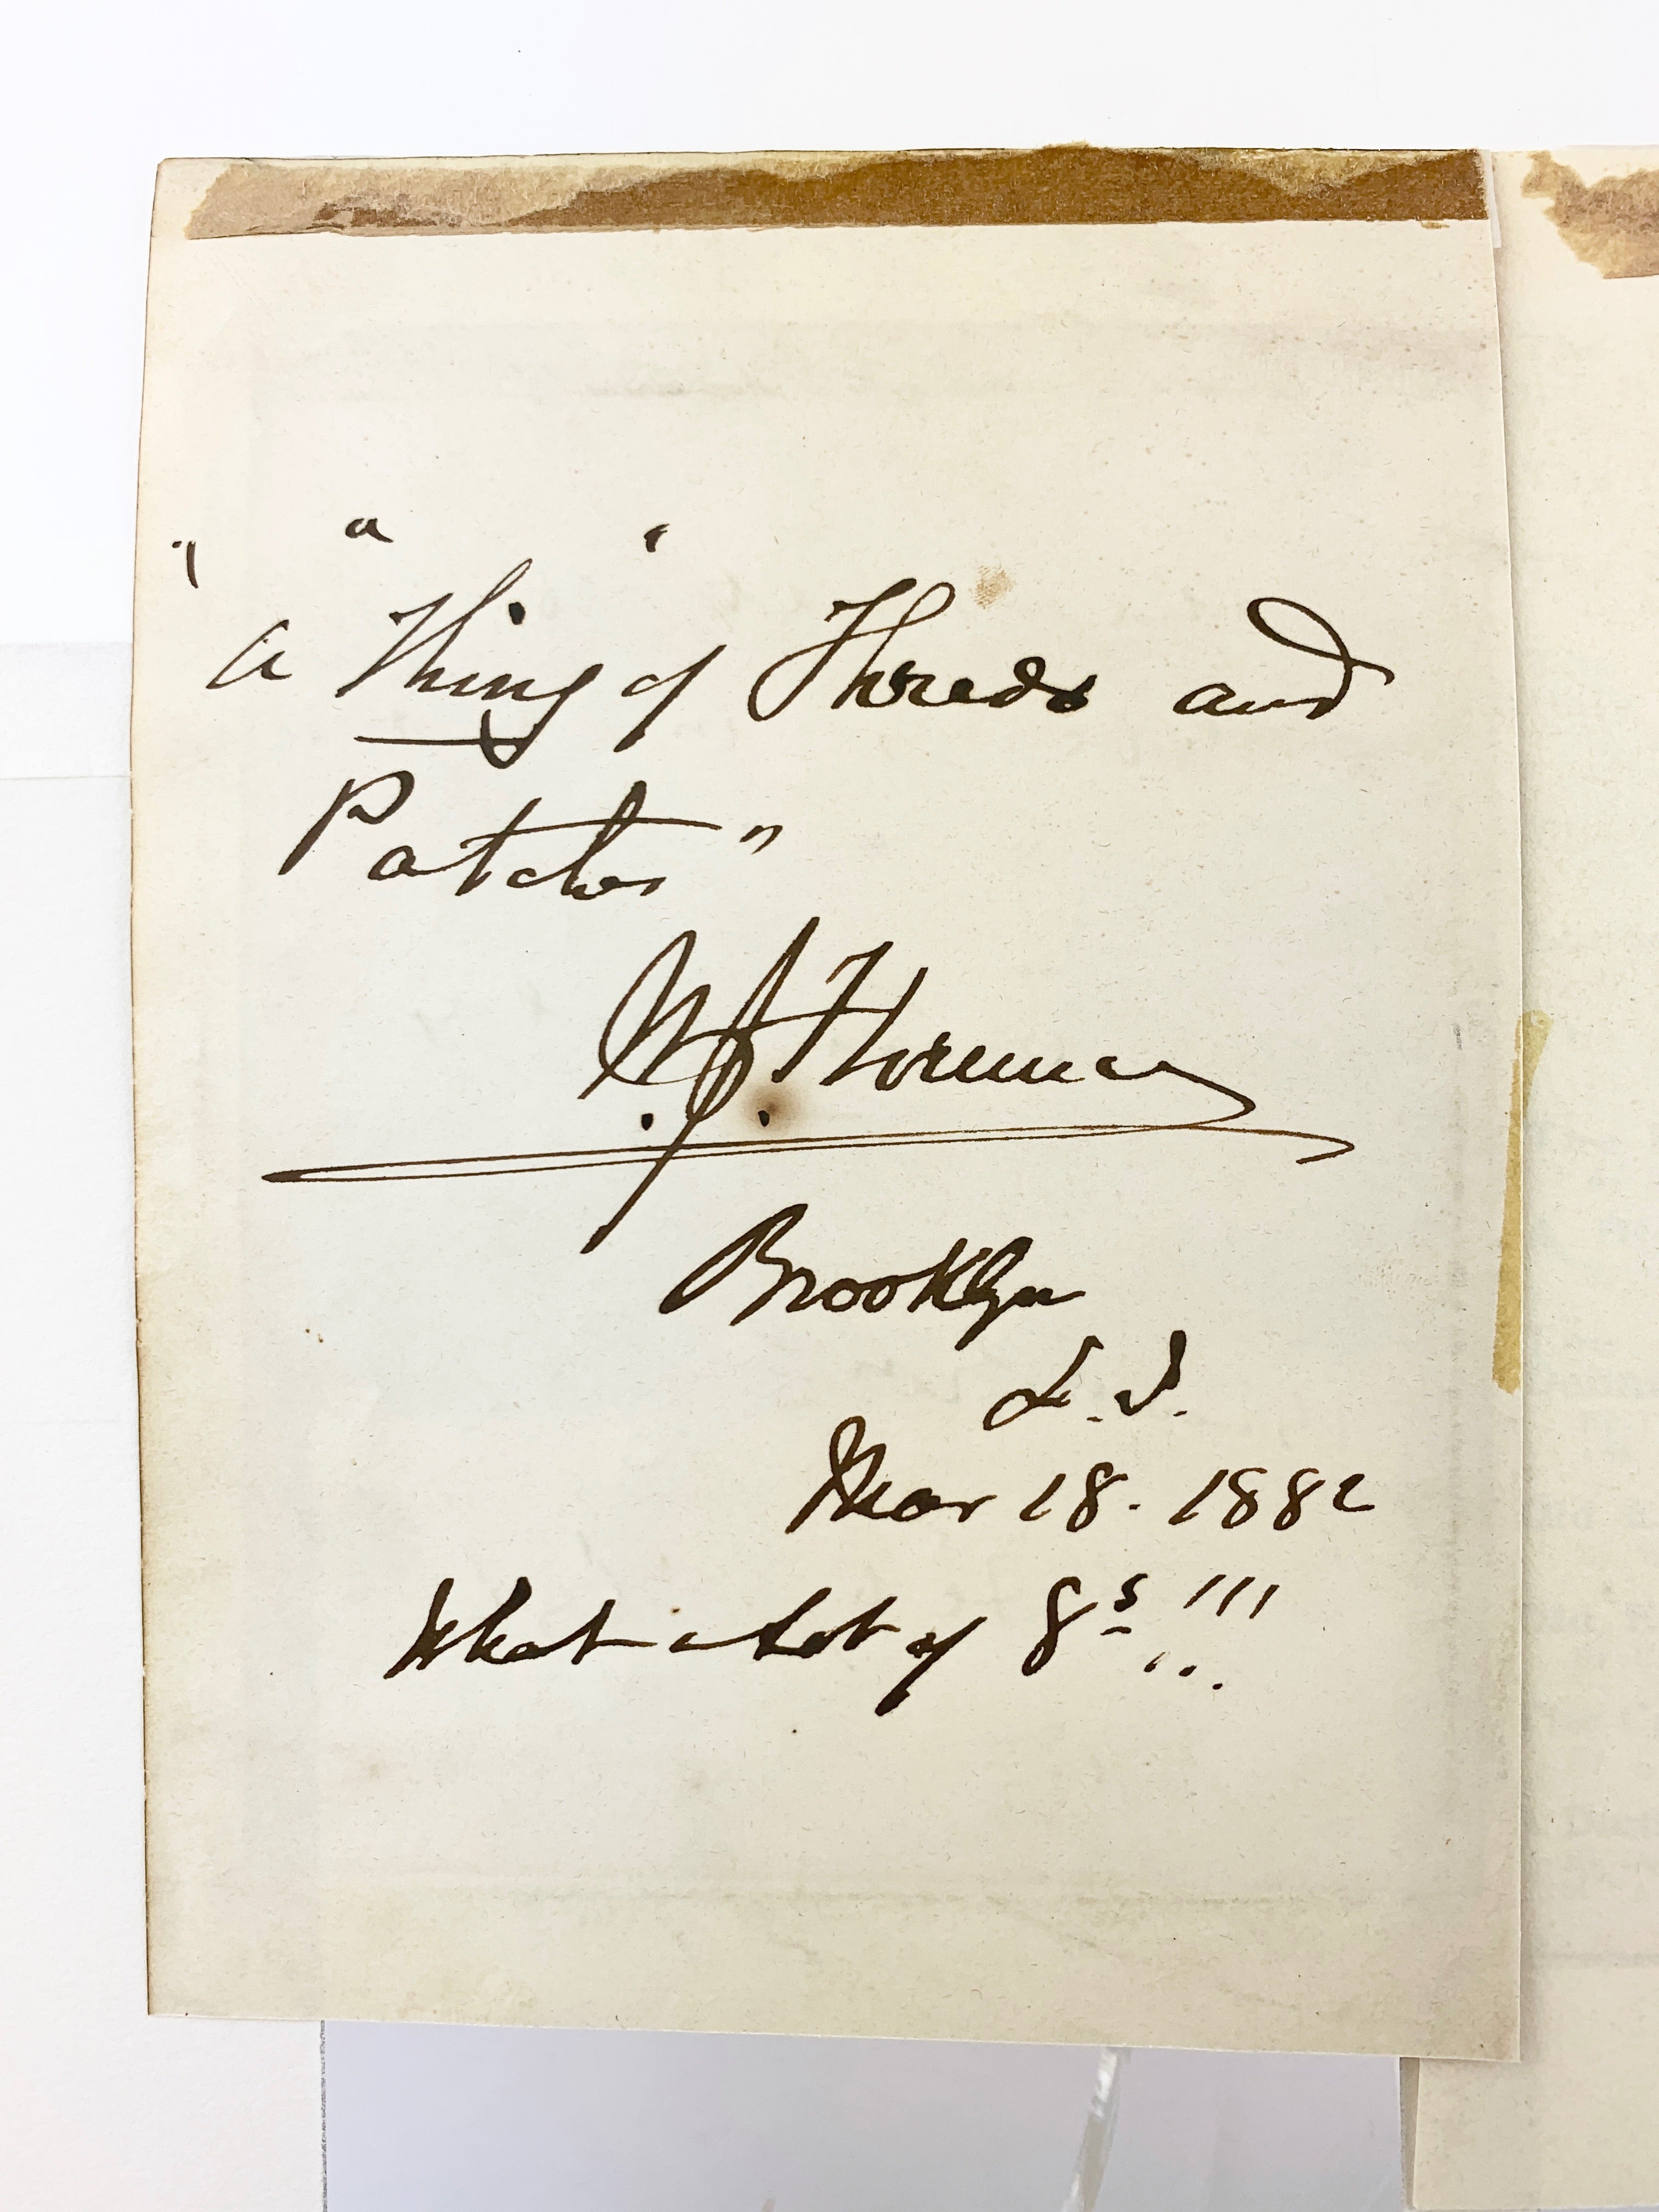 " a "
a Thing of Shreds and
Patches"
W. J. Florence
Brooklyn
L. I.
Mar 18. 1882
What a Lot of 8s !!!